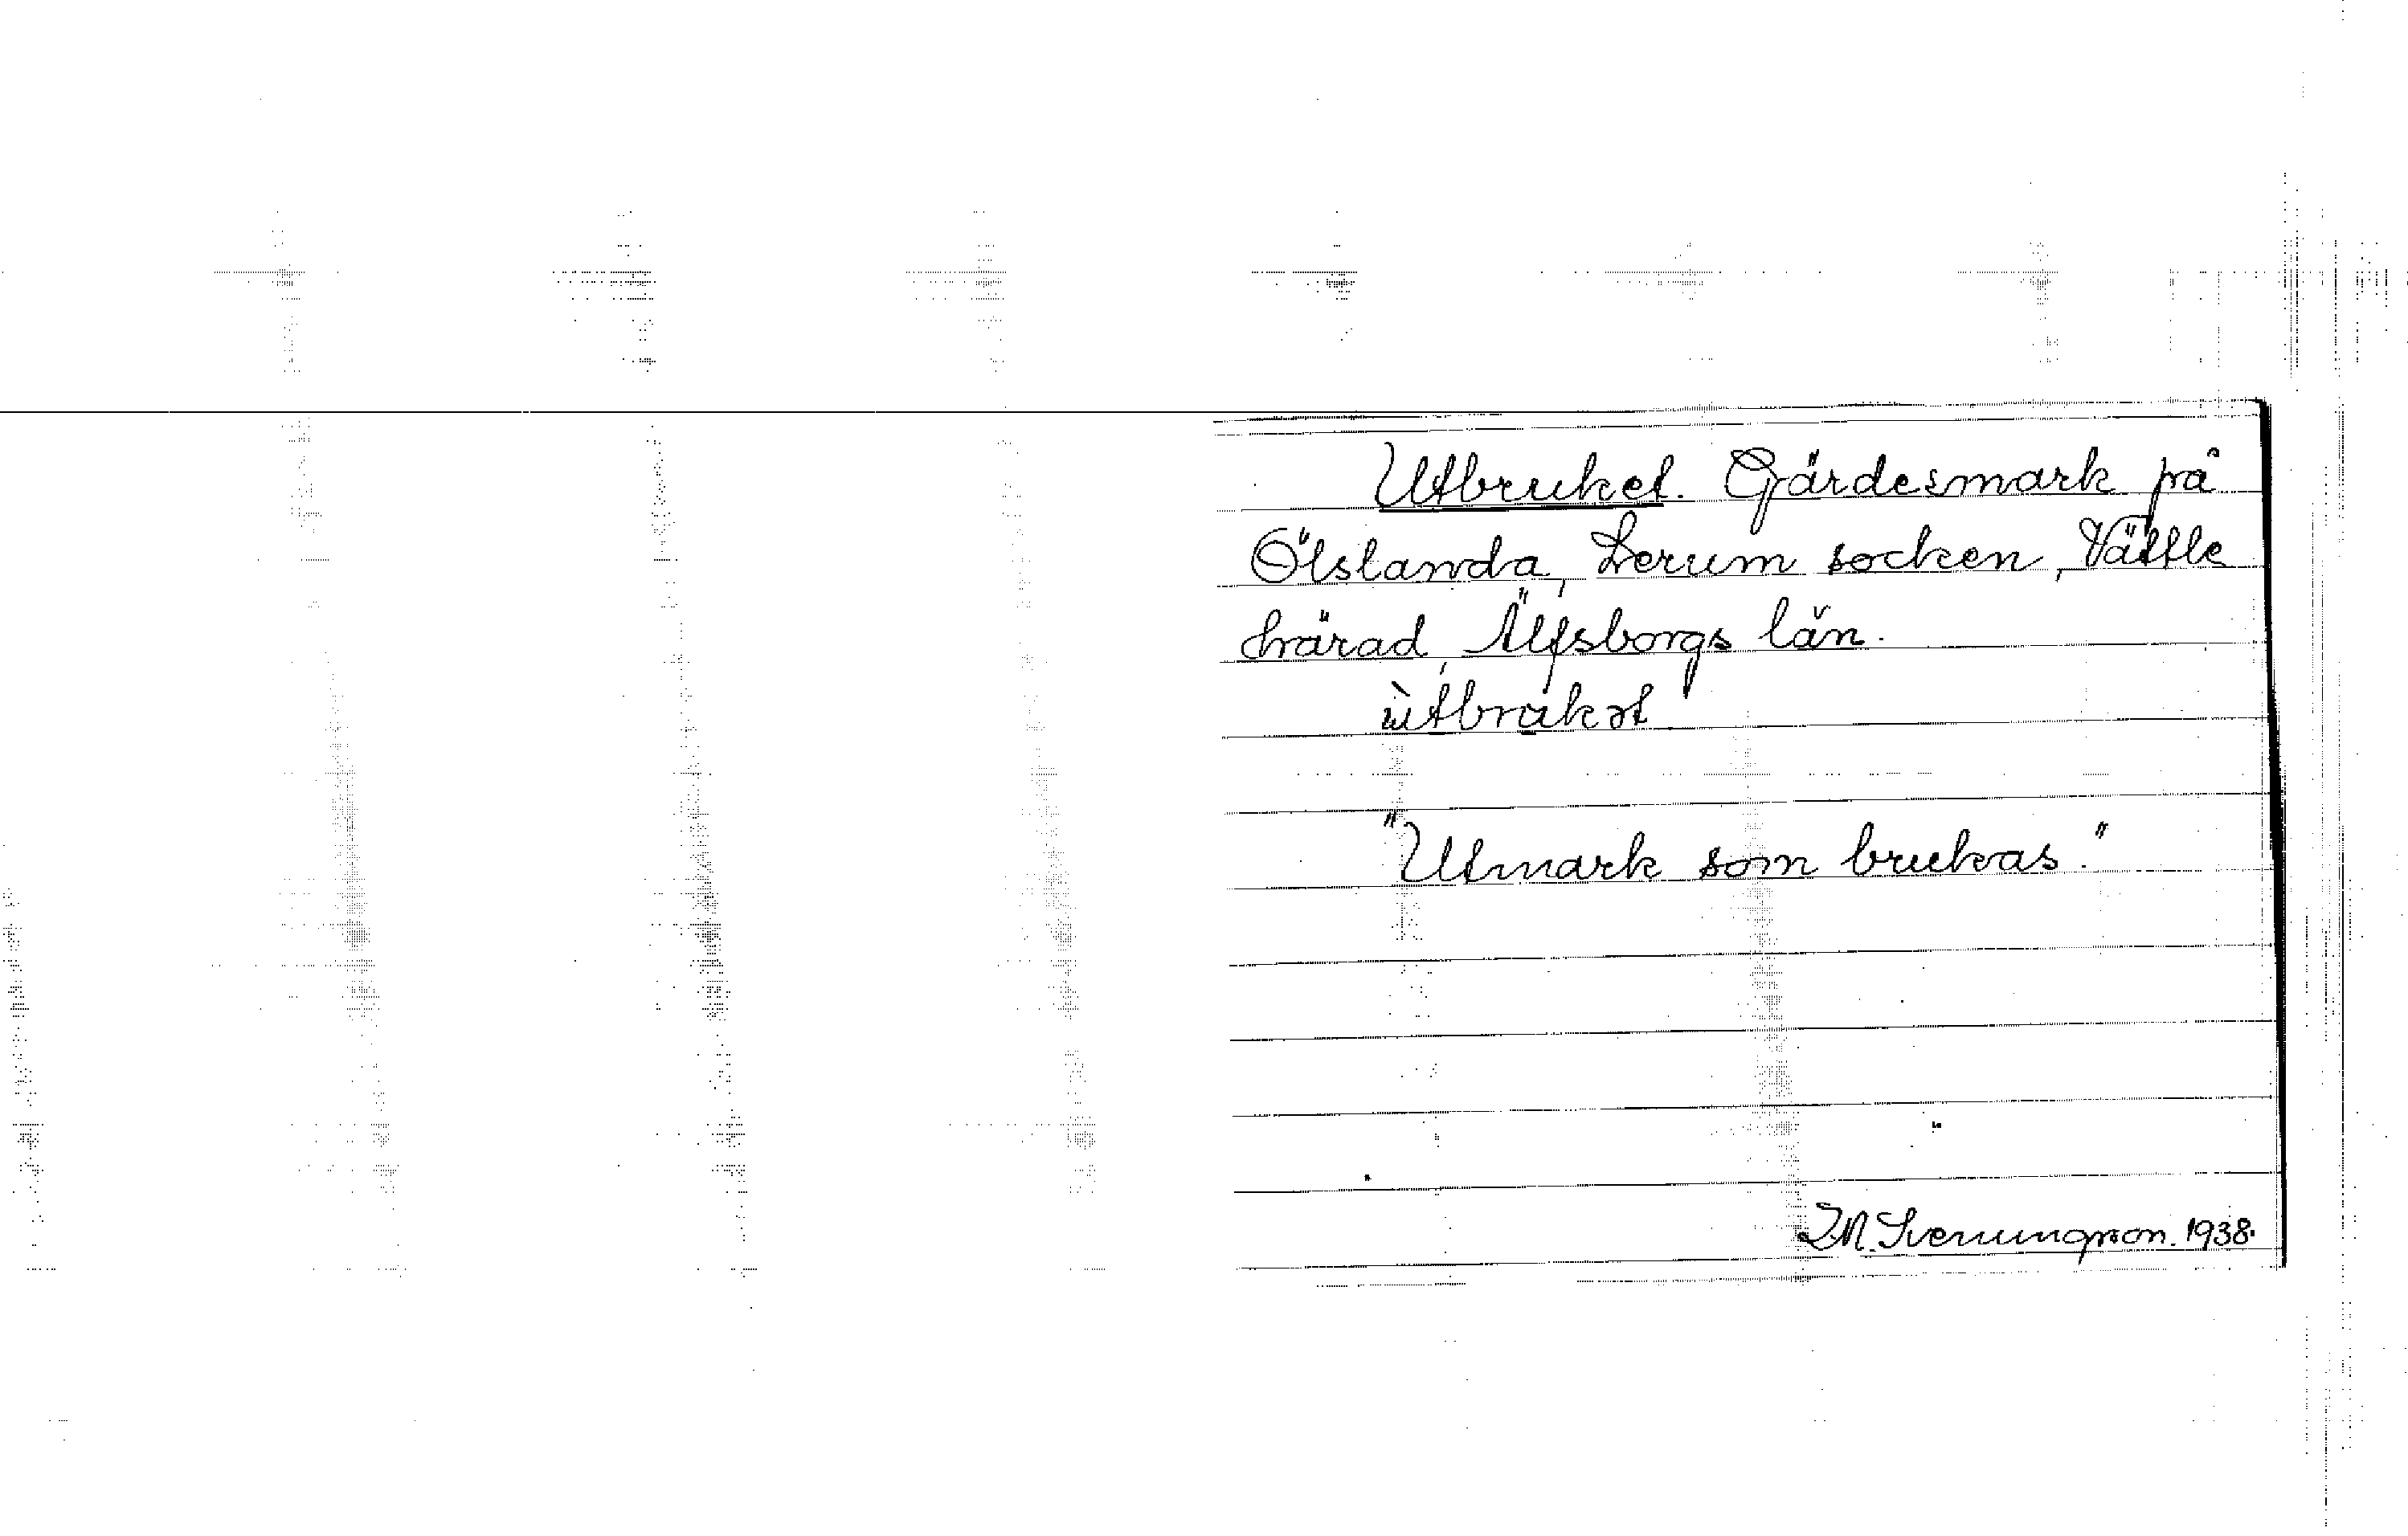 Utbruket. Gärdesmark på
Ölslanda, Lerum socken, Vättle
härad, Älfsborgs län.
ùtbrukət
"Utmark som brukas."
Svenungson. 1938.